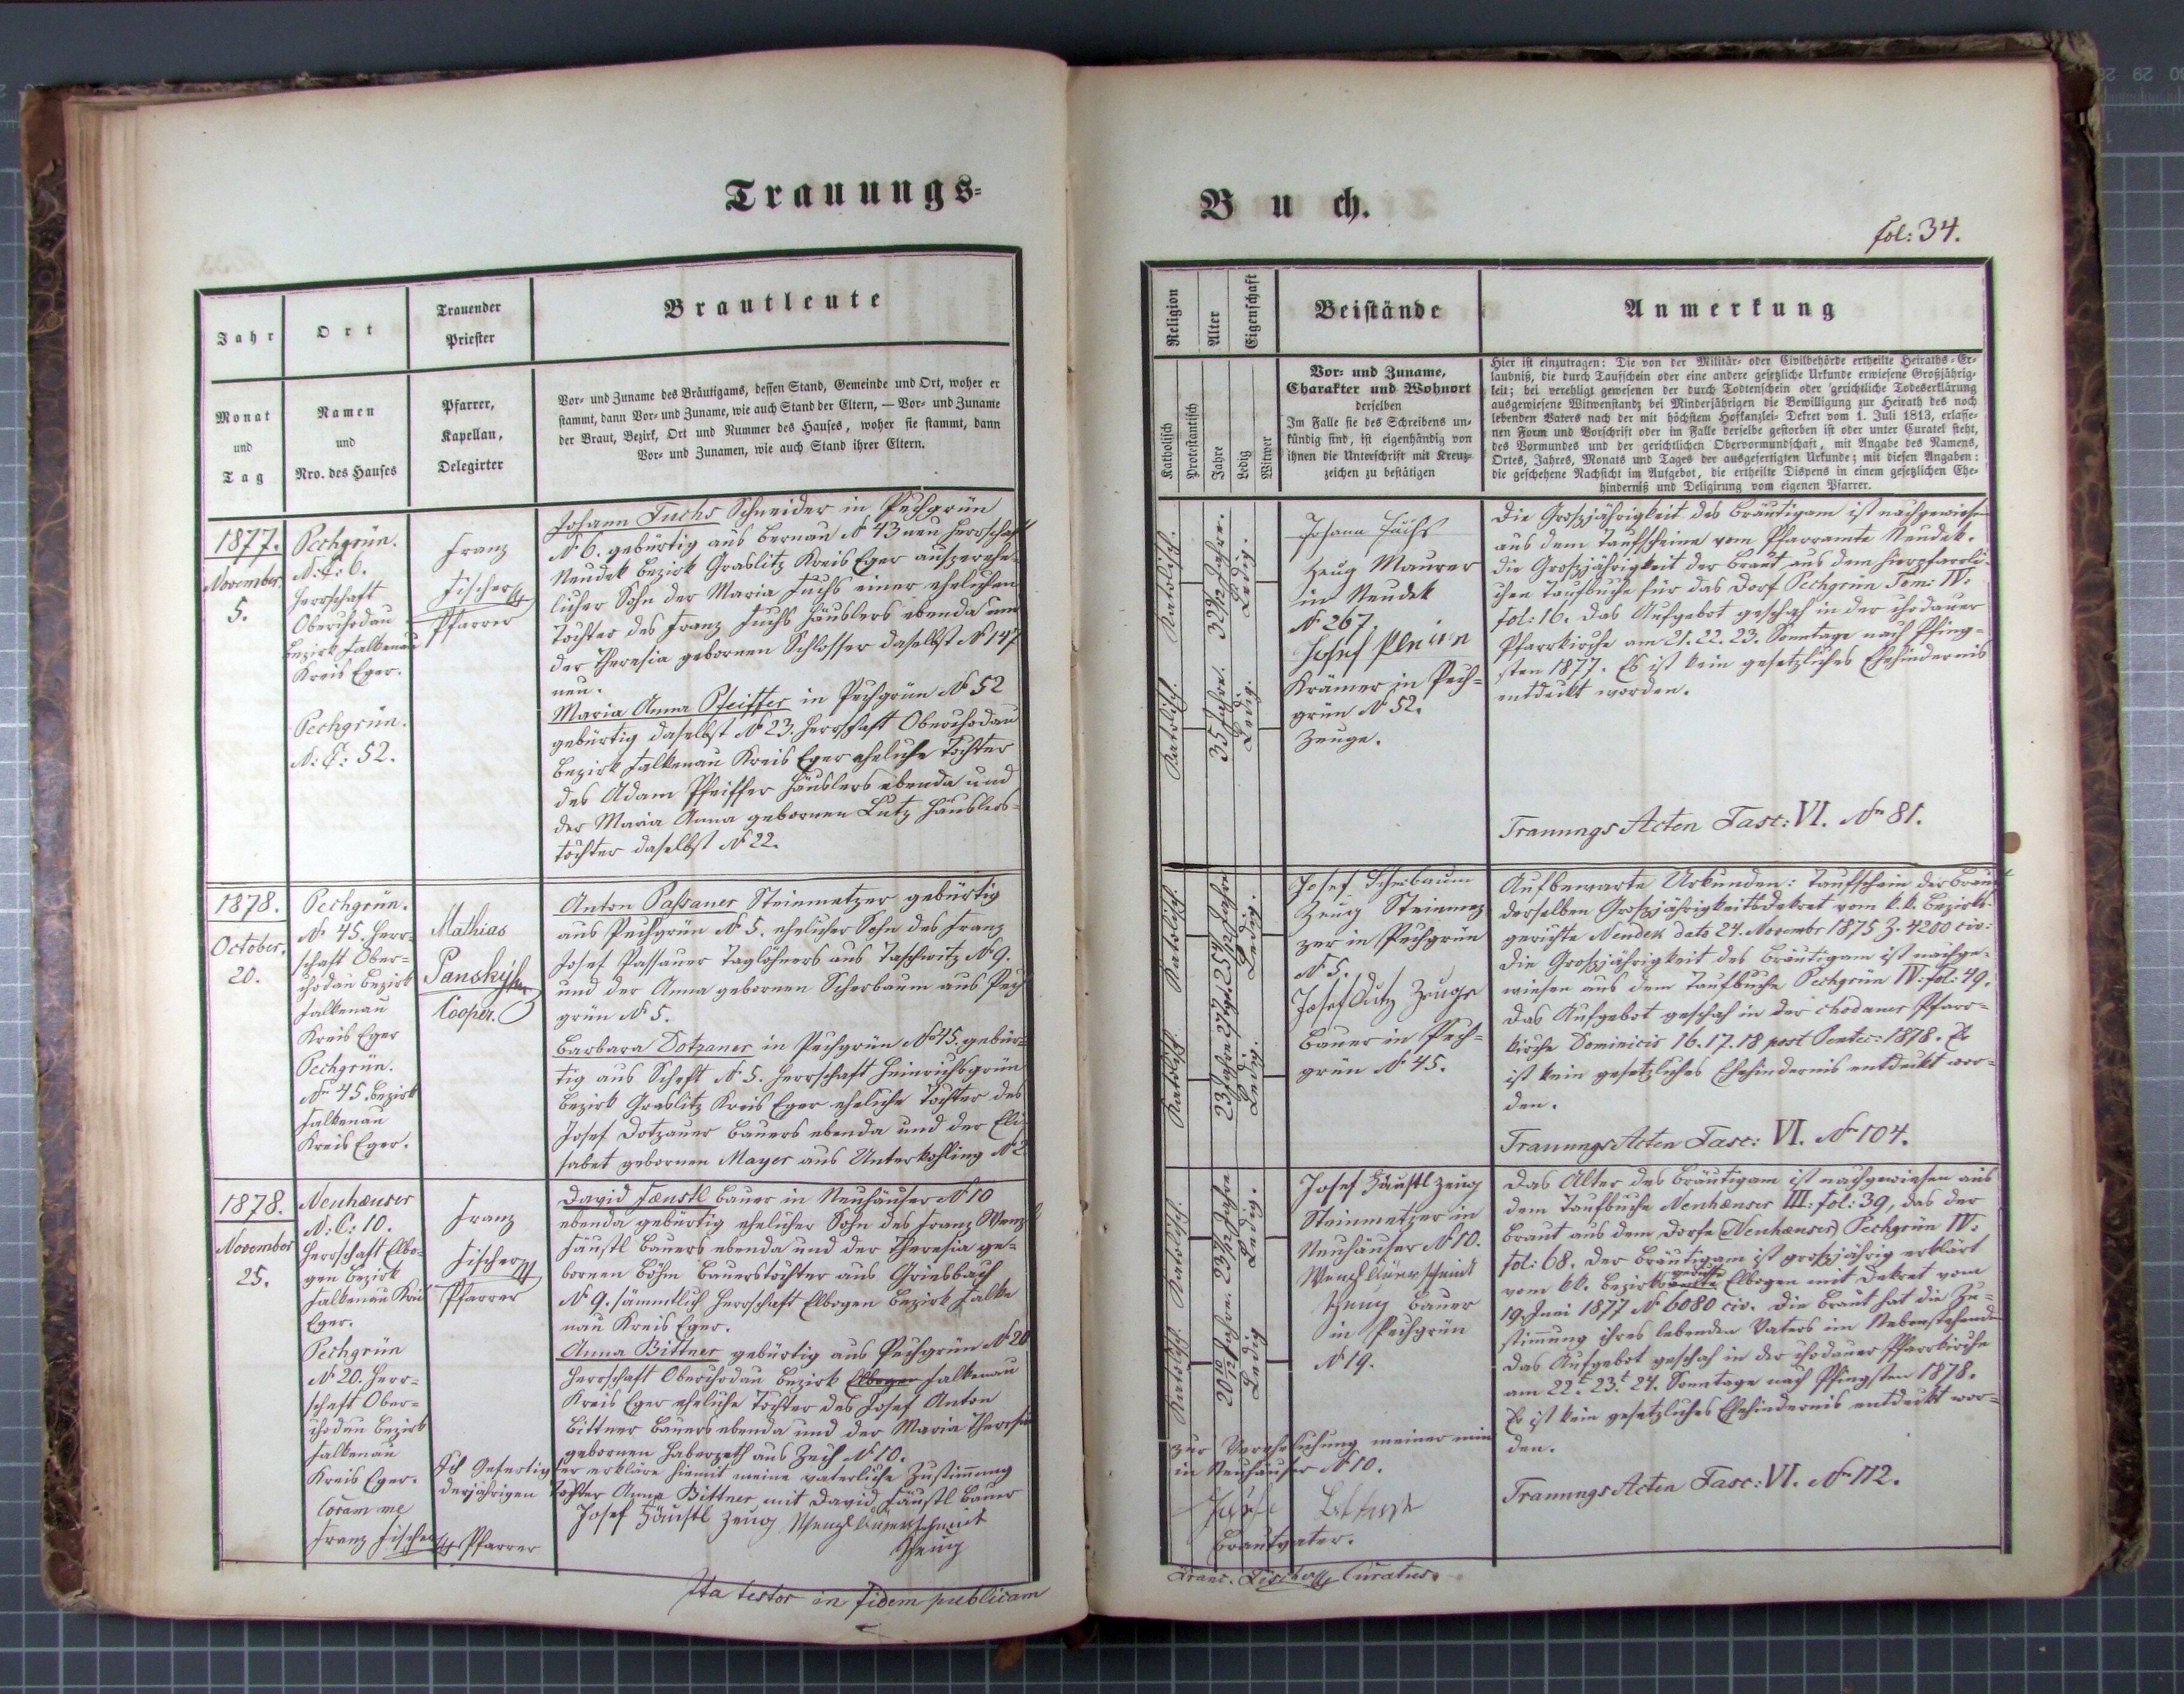 Trauungs-
Jahr
Ort
Trauender
Priester
Brautleute
Monat
und
Tag
Namen
und
Nro. des Hauses
Pfarrer,
Kapellan,
Delegirter
Vor- und Zuname des Bräutigams, dessen Stand, Gemeinde und Ort, woher er
stammt, dann Vor- und Zuname, wie auch Stand der Eltern, — Vor- und Zuname
der Braut, Bezirk, Ort und Nummer des Hauses, woher sie stammt, dann
Vor- und Zunamen, wie auch Stand ihrer Eltern.
1877.
November
5.
Pechgrün.
N: C: 6.
Herrschaft
Oberchodau
Bezirk Falkenau
Kreis Eger.
Pechgrün.
N: C: 52.
Franz
Fischer
Pfarrer
Johann Fuchs Schneider in Pechgrün
N 6. gebürtig aus Bernau N 43 neu Herrschaft
Neudek Bezirk Graslitz Kreis Eger außerehe-
licher Sohn der Maria Fuchs einer ehelichen
Tochter des Franz Fuchs Häuslers ebenda und
der Theresia gebornen Schlosser daselbst N 147
neu.
Maria Anna Pfeiffer in Pechgrün N 52
gebürtig daselbst N 23. Herrschaft Oberchodau
Bezirk Falkenau Kreis Eger eheliche Tochter
des Adam Pfeiffer Häuslers ebenda und
der Maria Anna gebornen Lutz Häuslers-
tochter daselbst N 22.
1878.
October.
20.
Pechgrün.
N 45. Herr-
schaft Ober-
chodau Bezirk
Falkenau
Kreis Eger
Pechgrün.
No 45. Bezirk
Falkenau
Kreis Eger.
Mathias
Panský
Cooper.
Anton Paßauer Steinmetzer gebürtig
aus Pechgrün N 5. ehelicher Sohn des Franz
Josef Passauer Taglöhners aus Taschwitz N 9.
und der Anna gebornen Scherbaum aus Pech
grün N 5.
Barbara Dotzauer in Pechgrün No 45. gebür-
tig aus Schöft N 5. Herrschaft Heinrichsgrün
Bezirk Graslitz Kreis Eger eheliche Tochter des
Josef Dotzauer Bauers ebenda und der Eli-
sabet gebornen Mayer aus Unterkohling N 2
1878.
November
25.
Neuhæuser
N: C: 10.
Herrschaft Elbo-
gen Bezirk
Falkenau Kreis
Eger.
Pechgrün
N 20. Herr-
schaft Ober-
chodau Bezirk
Falkenau
Kreis Eger.
Franz
Fischer
Pfarrer
David Fæustl Bauer in Neuhäuser N 10
ebenda gebürtig ehelicher Sohn des Franz Wenzl
Fäustl Bauers ebenda und der Theresia ge-
bornen Böhm Bauerstochter aus Griesbach
N 9. sämmtlich Herrschaft Elbogen Bezirk Falke
nau Kreis Eger.
Anna Bittner gebürtig aus Pechgrün N 20
Herrschaft Oberchodau Bezirk Elbogen Falkenau
Kreis Eger eheliche Tochter des Josef Anton
Bittner Bauers ebenda und der Maria Theresia
gebornen Haberzeth aus Zech N 10.
Ich Gefertigter erkläre hiemit meine vaterliche Zustimmung
derjährigen Tochter Anna Bittner mit David Fäustl Bauer
Coram me
Josef Fäustl Zeug
Franz Fischer Pfarrer
Zeug
Ita testor in fidem publicam
Buch.
fol: 34.
Religion
Alter
Eigenschaft
Beistände
Anmerkung
Katholisch
Protestantisch
Jahre
Ledig
Witwer
Vor- und Zuname,
Charakter und Wohnort
derselben
Im Falle sie des Schreibens un-
kündig sind, ist eigenhändig von
ihnen die Unterschrift mit Kreuz-
zeichen zu bestätigen
Hier ist einzutragen: Die von der Militär- oder Civilbehörde ertheilte Heiraths-Er-
laubniß, die durch Taufschein oder eine andere gesetzliche Urkunde erwiesene Großjährig-
keit; bei verehligt gewesenen der durch Todtenschein oder gerichtliche Todeserklärung
ausgewiesene Witwenstand; bei Minderjährigen die Bewilligung zur Heirath des noch
lebenden Vaters nach der mit höchstem Hofkanzlei-Dekret vom 1. Juli 1813, erlasse-
nen Form und Vorschrift oder im Falle derselbe gestorben ist oder unter Curatel steht,
des Vormundes und der gerichtlichen Obervormundschaft, mit Angabe des Namens,
Ortes, Jahres, Monats und Tages der ausgefertigten Urkunde; mit diesen Angaben:
die geschehene Nachsicht im Aufgebot, die ertheilte Dispens in einem gesetzlichen Ehe-
hinderniß und Deligirung vom eigenen Pfarrer.
Katolisch.
Katolisch.
35 Jahre.
Ledig.
Ledig.
Johann Fuchs
Zeug Maurer
in Neudek
N 267.
Josef
Krämer in Pech-
grün N 52.
Zeuge.
Die Großjährigkeit des Bräutigam ist nachgewiesen
aus dem Taufscheine vom Pfarramte Neudek.
Die Großjährigkeit der Braut aus dem hierpfarrli-
chen Taufbuche für das Dorf Pechgrün Tom: IV.
fol: 16. Das Aufgebot geschah in der chodauer
Pfarrkirche am 21. 22. 23. Sonntage nach Pfing-
sten 1877. Es ist kein gesetzliches Ehehindernis
entdeckt worden.
Trauungs Acten Fasc: VI. No 81.
Katolisch.
Katolisch.
Ledig.
Ledig.
Josef Scherbaum
Zeug Steinmez
zer in Pechgrün
N 5.
Josef Lutz Zeuge
Bauer in Pech-
grün N 45.
Aufbewarte Urkunden: Taufschein der Braut
derselben Großjährigkeitsdekret vom k.k. Bezirks-
gerichte Neudek dato 24. Novembr 1875 Z. 4200 civ:
Die Großjährigkeit des Bräutigam ist nachge-
wiesen aus dem Taufbuche Pechgrün IV: fol: 49.
Das Aufgebot geschah in der chodauer Pfarr-
kirche Dominicis 16. 17. 18 post Pentec: 1878. Es
ist kein gesetzliches Ehehindernis entdeckt wor-
den.
Trauungs Acten Fasc: VI. No 104.
Katolisch.
Katolisch.
Ledig.
Ledig
Josef Fäustl Zeug
Steinmetzer in
Neuhäuser N 10.
Zeug Bauer
in Pechgrün
N 19.
Das Alter des Bräutigam ist nachgewiesen aus
dem Taufbuche Neuhæuser III: fol: 39, das der
Braut aus dem Dorfe (Neuhæuser) Pechgrün IV:
fol: 68. Der Bräutigam ist großjährig erklärt
vom kk. Bezirksgerichte Elbogen mit Dekret vom
19. Juni 1877 N 6080 civ. Die Braut hat die Zu-
stimmung ihres lebenden Vaters im Nebenstehenden
Das Aufgebot geschah in der chodauer Pfarrkirche
am 22t 23t 24. Sonntage nach Pfingsten 1878.
Es ist kein gesetzliches Ehehindernis entdeckt wor-
den.
Trauungs Acten Fasc: VI. No 112.
zur Verehelichung meiner min
in Neuhäuser N 10.
Josef Bittner
Brautvater.
Franc. Fischer Curatus.